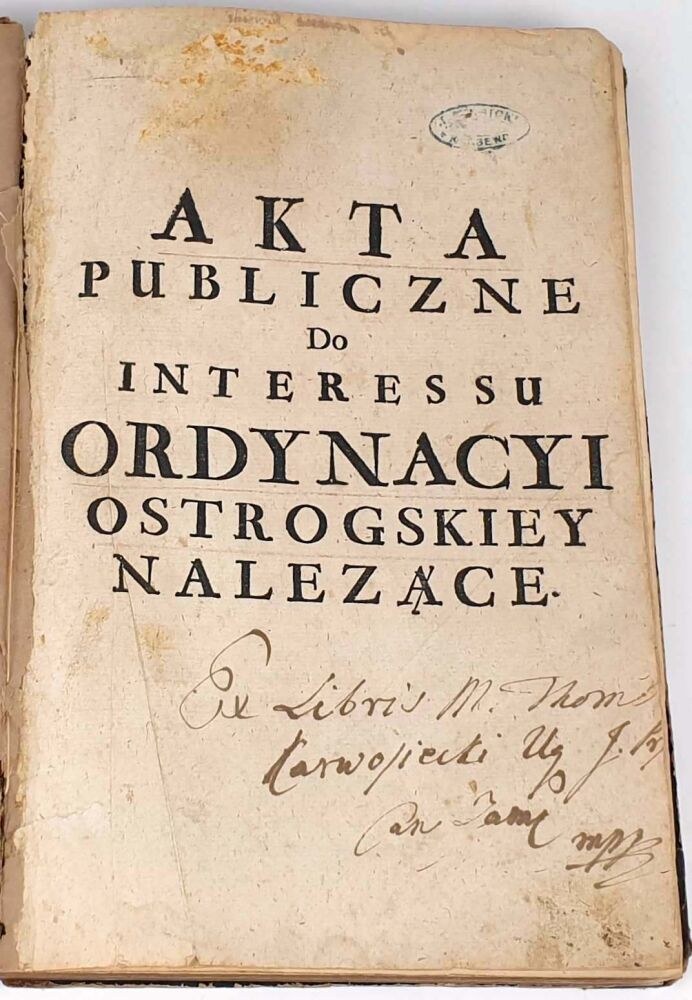 AKTA
PUBLICZNE
Do
INTERESSU
ORDYNACYI
OSTROGSKIEY
NALEZĄCE.
Ex Libris M. Thom
Karwosiecki
mpp